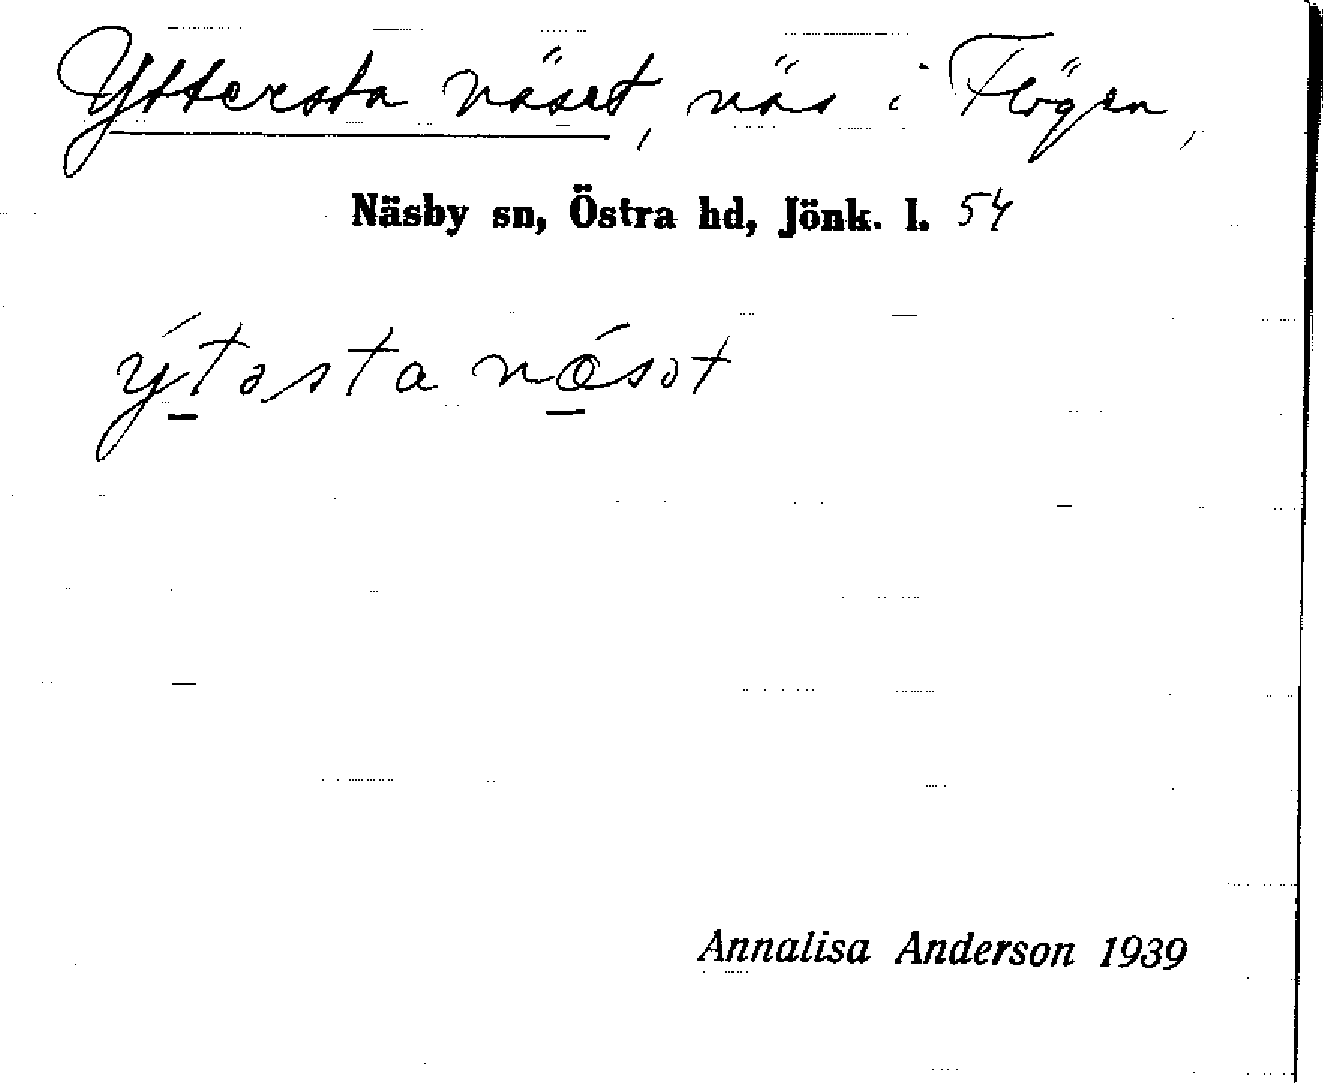 Yttersta näset, näs i Flögen,
Näsby sn, Östra hd, Jönk. l. 54
ýt̲əsta nǿ̲sət
Annalisa Anderson 1939